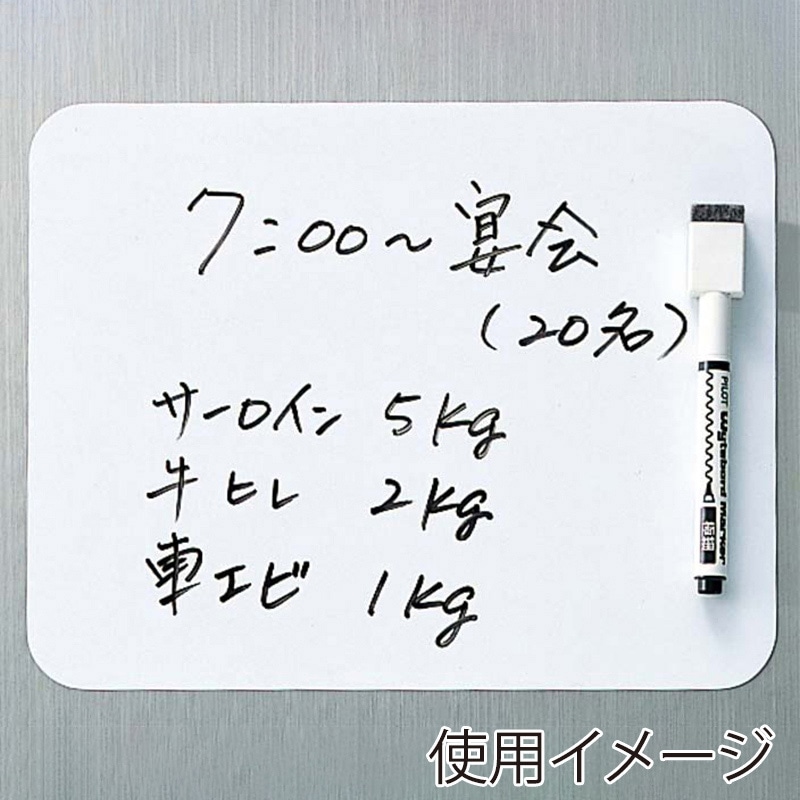 7:00～宴会
(20名)
サーロイン 5kg
牛ヒレ 2kg
車エビ 1kg
PILOT Wytebord marker 極細
使用イメージ